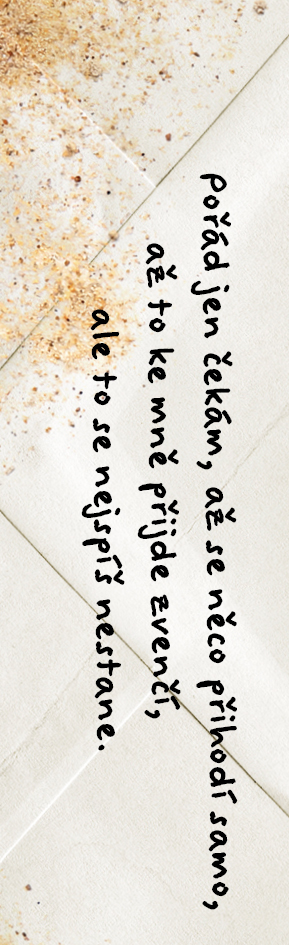 Pořád jen čekám, až se něco přihodí samo,
až to ke mně přijde zvenčí,
ale to se nejspíš nestane.